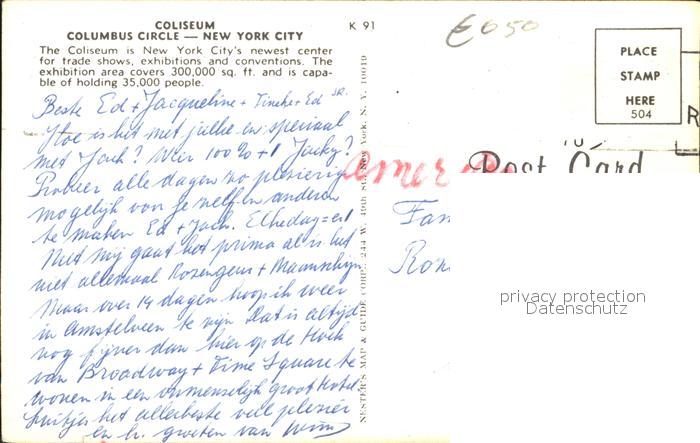 COLISEUM
COLUMBUS CIRCLE — NEW YORK CITY
The Coliseum is New York City's newest center
for trade shows, exhibitions and conventions. The
exhibition area covers 300,000 sq. ft. and is capa-
ble of holding 35,000 people.
K 91
€ 6 50
PLACE
STAMP
HERE
504
Post Card
Beste Ed + Jacqueline + Tineke + Ed SR.
Hoe is het met jullie en speciaal
met Jack? Weer 100% + 1 Jacky?
Probeer alle dagen zo plezierig
mogelijk voor je zelf en anderen
te maken Ed + Jack. Elke dag = er 1
Met mij gaat het prima al is het
niet allemaal Rozengeur + Maanschijn
Maar over 14 dagen hoop ik weer
in Amstelveen te zijn. Dat is altijd
nog fijner dan hier op de Hoek
van Broadway + Time Square te
wonen in een onmenselijk groot Hotel
het allerbeste veel plezier
en h. groeten van Wim
NESTER'S MAP & GUIDE CORP. 244 W. 49th St. New York, N. Y. 10019
Fam
privacy protection
Datenschutz